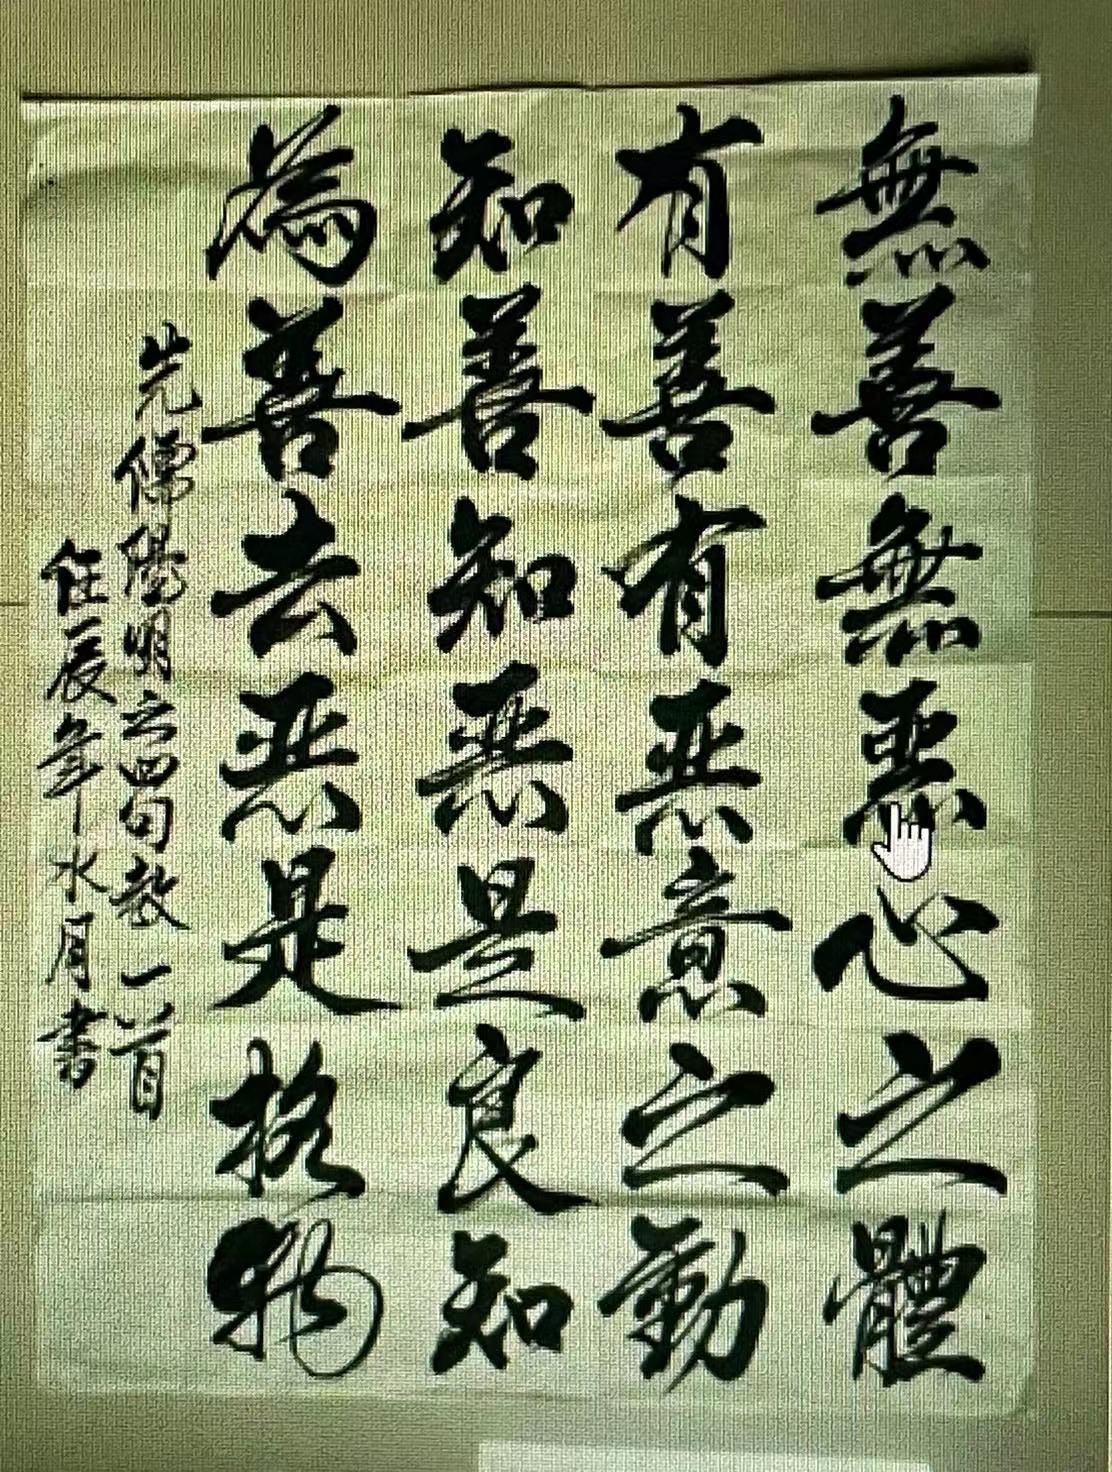 無善無惡心之體
有善有惡意之動
知善知惡是良知
為善去惡是格物
先儒陽明之四句教一首
任辰年水月書